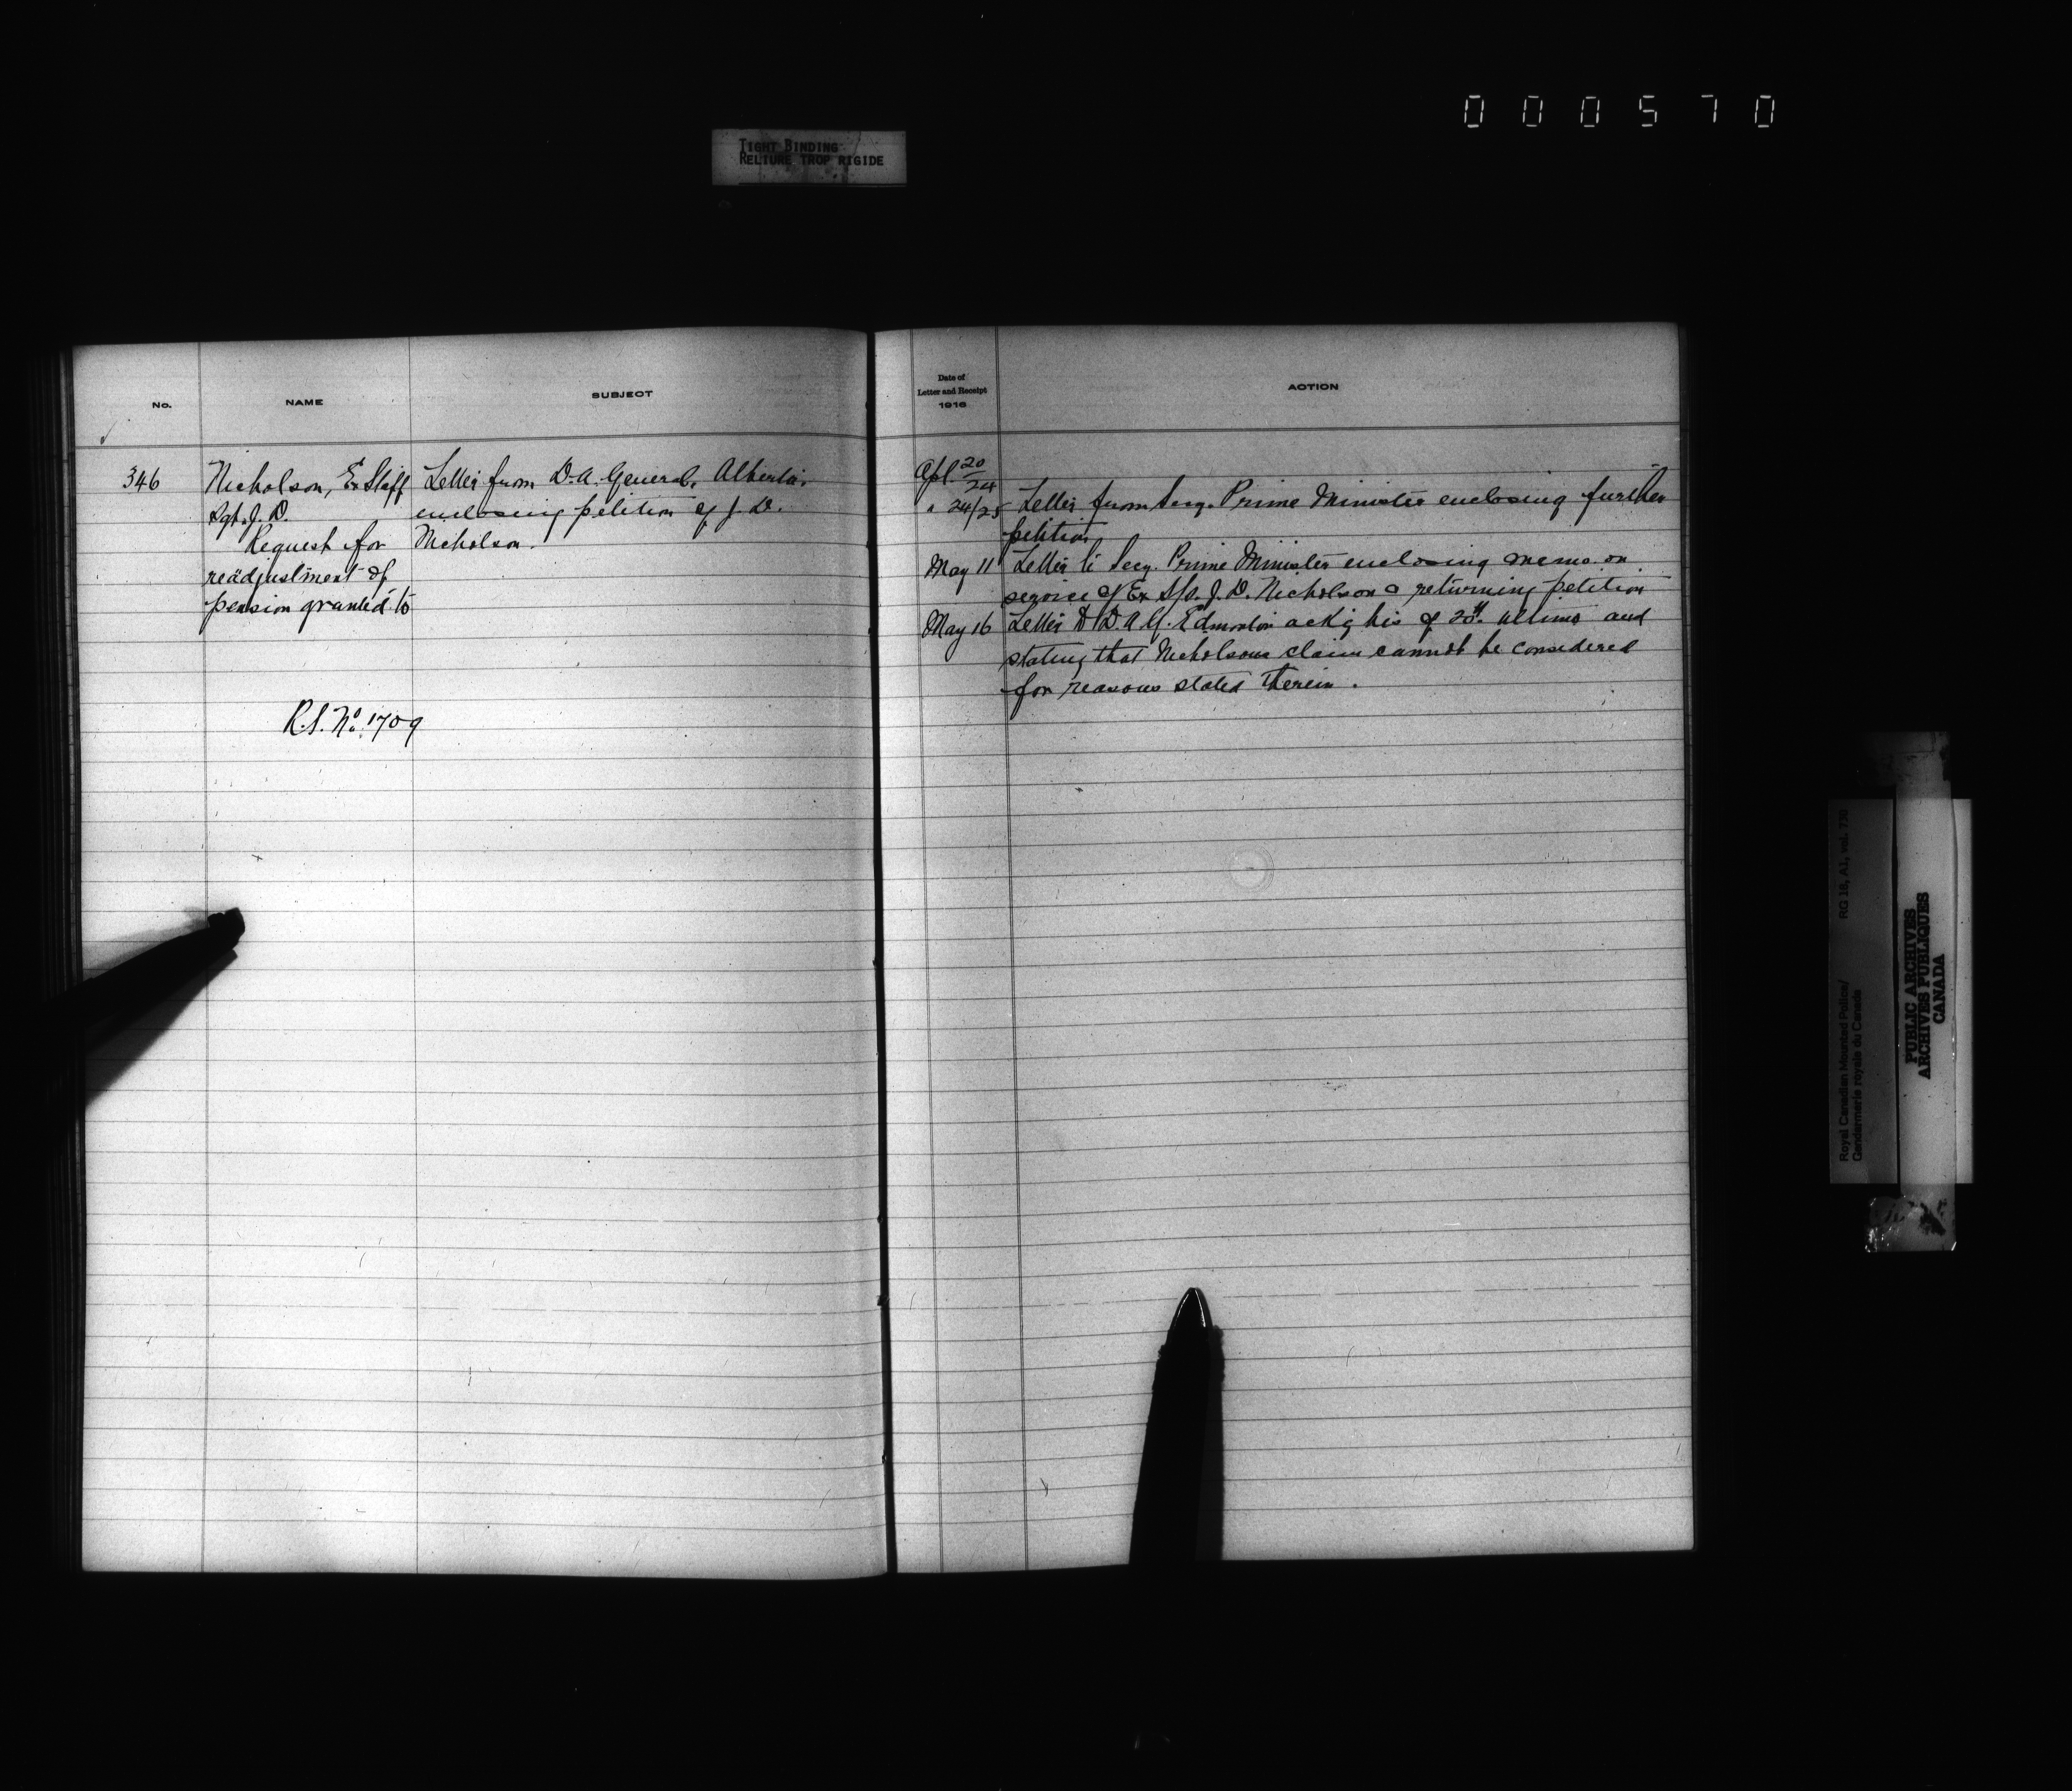 000570
TIGHT BINDING
RELIURE TROP RIGIDE
No.
NAME
SUBJECT
346
Nicholson, Ex Staff
Sgt. J. D.
Request for
readjustment of
pension granted to
R.S. No. 1709
Letter from D.A. General, Alberta,
enclosing petition of J. D.
Nicholson.
Date of
Letter and Receipt
1916
ACTION
Apl. 20/24
" 24/25 Letter from Secy. Prime Minister enclosing further
petition
May 11 Letter to Secy. Prime Minister enclosing memo. on
service of Ex S/S. J. D. Nicholson & returning petition
May 16 Letter to D A G. Edmonton ackg his of 20th ultimo and
stating that Nicholsons claim cannot be considered
for reasons stated therein.
Royal Canadian Mounted Police/
Gendarmerie royale du Canada
RG 18, A1, vol. 770
PUBLIC ARCHIVES
ARCHIVES PUBLIQUES
CANADA